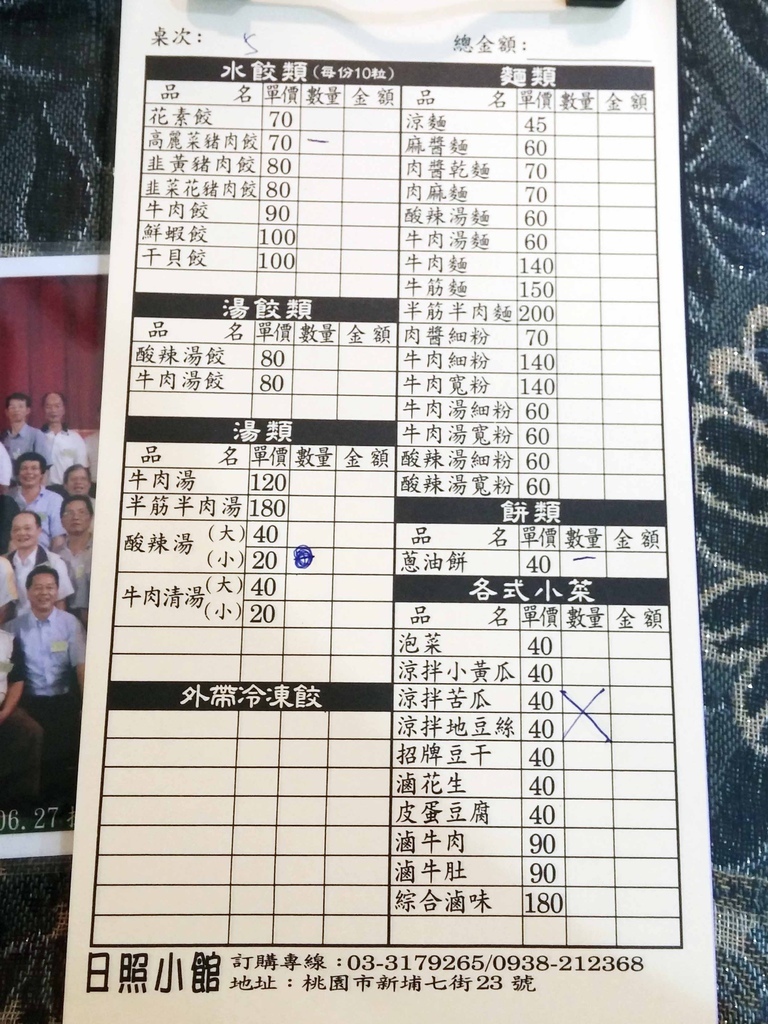 桌次： 5 總金額：
水餃類（每份10粒）
品 名 單價 數量 金額
花素餃 70
高麗菜豬肉餃 70 一
韭黃豬肉餃 80
韭菜花豬肉餃 80
牛肉餃 90
鮮蝦餃 100
干貝餃 100
湯餃類
品 名 單價 數量 金額
酸辣湯餃 80
牛肉湯餃 80
湯類
品 名 單價 數量 金額
牛肉湯 120
半筋半肉湯 180
酸辣湯 (大) 40
(小) 20
牛肉清湯 (大) 40
(小) 20
外帶冷凍餃
麵類
品 名 單價 數量 金額
涼麵 45
麻醬麵 60
肉醬乾麵 70
肉麻麵 70
酸辣湯麵 60
牛肉湯麵 60
牛肉麵 140
牛筋麵 150
半筋半肉麵 200
肉醬細粉 70
牛肉細粉 140
牛肉寬粉 140
牛肉湯細粉 60
牛肉湯寬粉 60
酸辣湯細粉 60
酸辣湯寬粉 60
餅類
品 名 單價 數量 金額
蔥油餅 40 一
各式小菜
品 名 單價 數量 金額
泡菜 40
涼拌小黃瓜 40
涼拌苦瓜 40
涼拌地豆絲 40
招牌豆干 40
滷花生 40
皮蛋豆腐 40
滷牛肉 90
滷牛肚 90
綜合滷味 180
日照小館
訂購專線：03-3179265/0938-212368
地址：桃園市新埔七街23號
06.27